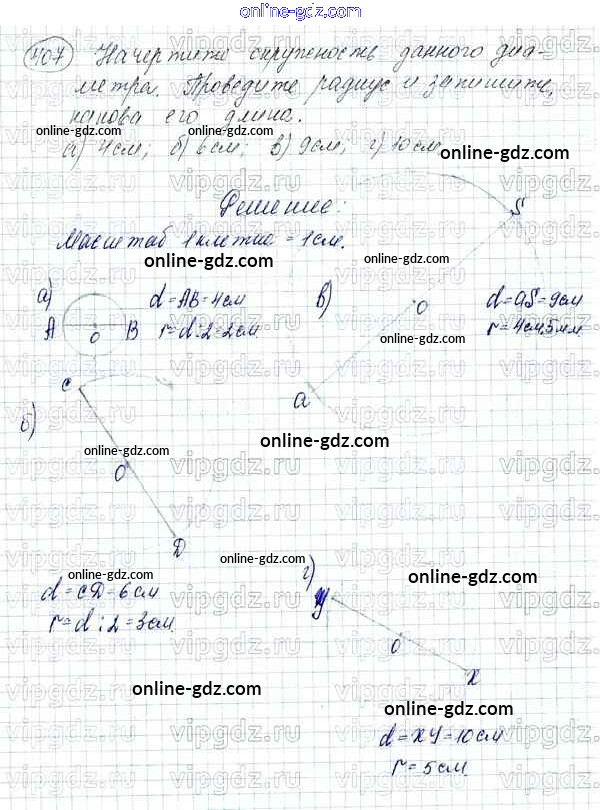 online-gdz.com
407 Начертите окружность данного диа-
метра. Проведите радиус и запишите,
какова его длина.
а) 4см; б) 6см; в) 9см; г) 10см
online-gdz.com
online-gdz.com
online-gdz.com
Решение:
S
Масштаб 1 клетка = 1см.
online-gdz.com
online-gdz.com
а)
A O B
d = AB = 4см
r = d : 2 = 2см
online-gdz.com
в)
O
a
d = aS = 9см
r = 4см5мм
online-gdz.com
online-gdz.com
б)
C
O
D
online-gdz.com
online-gdz.com
d = CD = 6см
r = d : 2 = 3см.
online-gdz.com
online-gdz.com
г)
У
O
X
online-gdz.com
online-gdz.com
online-gdz.com
d = XУ = 10см
r = 5см.
vipgdz.ru